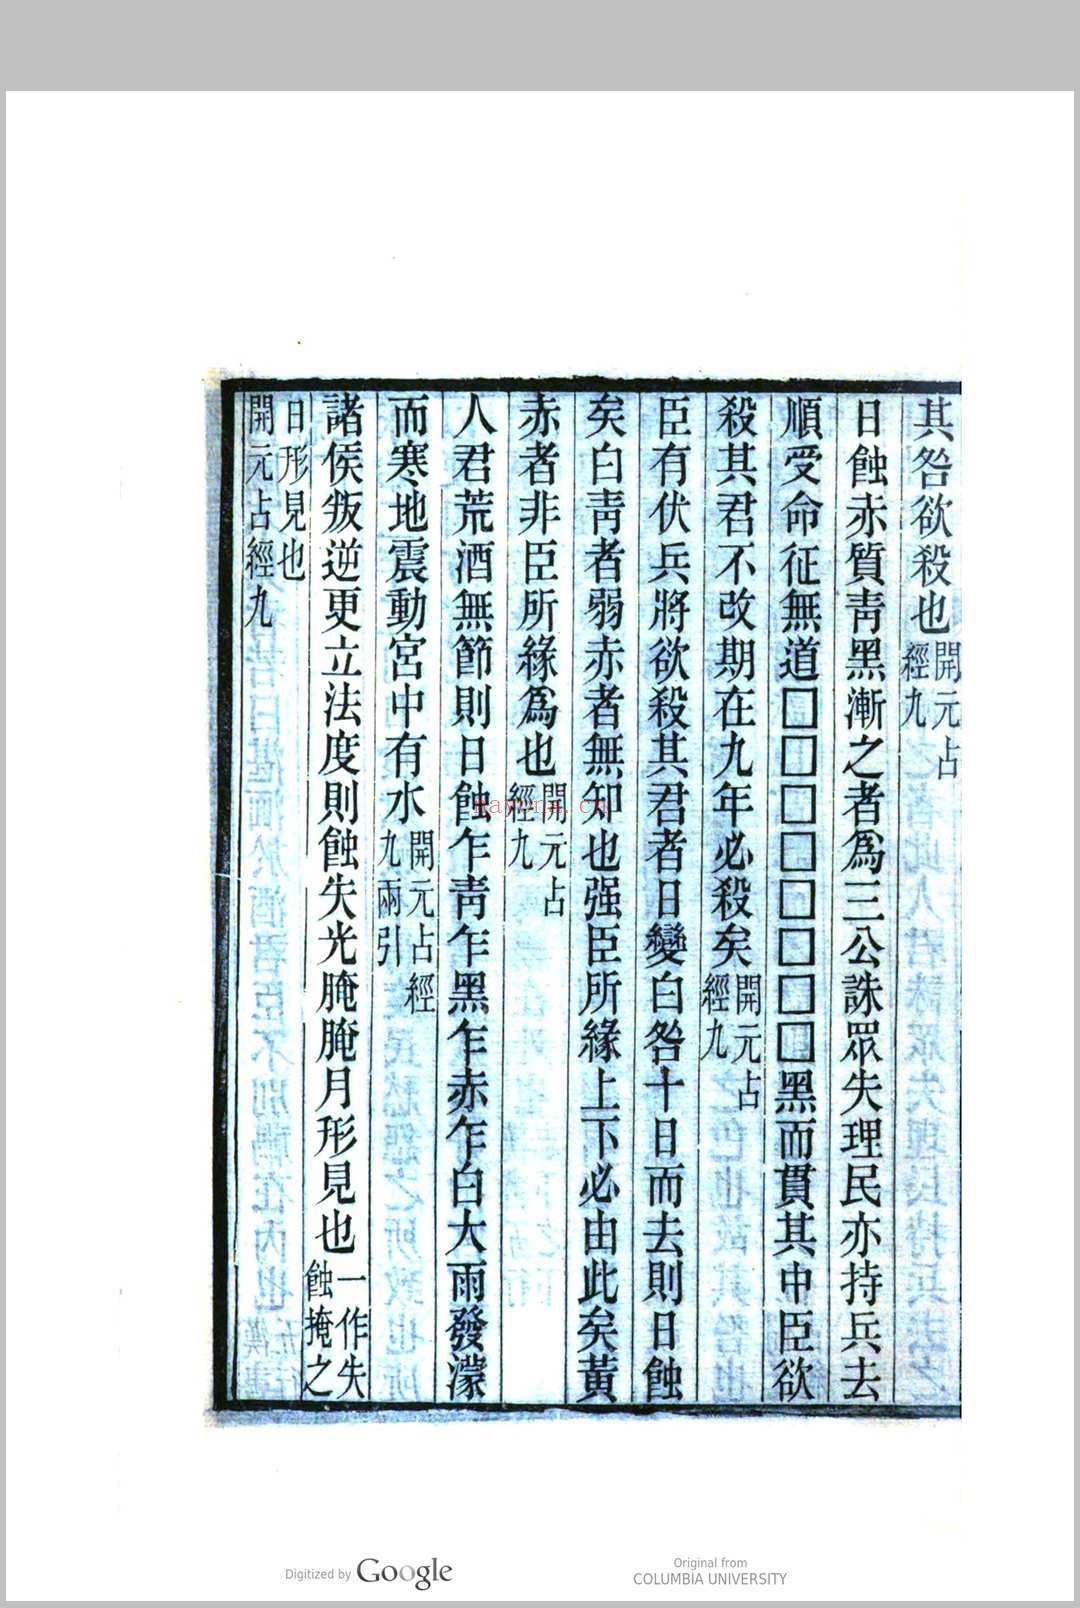 其咎欲殺也開元占經九
日蝕赤質靑黑漸之者爲三公誅眾失理民亦持兵去
順受命征無道□□□□□□□□黑而貫其中臣欲
殺其君不改期在九年必殺矣開元占經九
臣有伏兵將欲殺其君者日變白咎十日而去則日蝕
矣白靑者弱赤者無知也强臣所緣上下必由此矣黃
赤者非臣所緣爲也開元占經九
人君荒酒無節則日蝕乍靑乍黑乍赤乍白大雨發濛
而寒地震動宮中有水開元占經九兩引
諸侯叛逆更立法度則蝕失光腌腌月形見也一作失蝕掩之
日形見也開元占經九
Hayona.cn
Digitized by Google
Original from
COLUMBIA UNIVERSITY